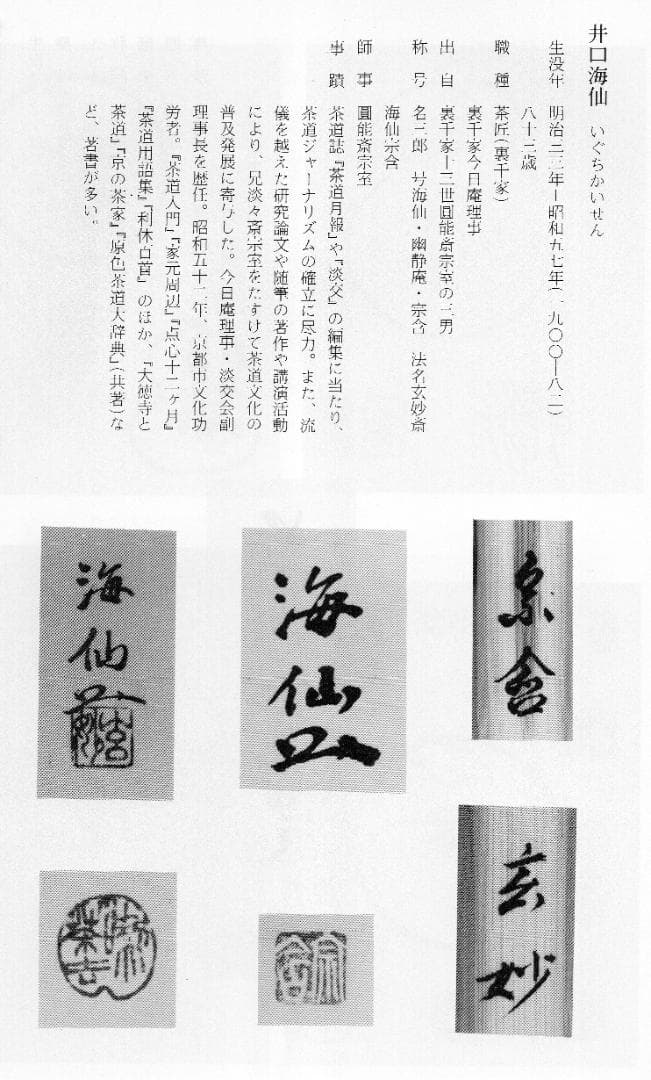 井口海仙 いぐちかいせん
生没年 明治三三年―昭和五七年(一九〇〇―八二)
八十三歳
職種 茶匠(裏千家)
裏千家今日庵理事
出自 裏千家十三世圓能斎宗室の三男
称号 名三郎 号海仙・幽静庵・宗含 法名玄妙斎
海仙宗含
師事 圓能斎宗室
事蹟 茶道誌『茶道月報』や『淡交』の編集に当たり、
茶道ジャーナリズムの確立に尽力。また、流
儀を越えた研究論文や随筆の著作や講演活動
により、兄淡々斎宗室をたすけて茶道文化の
普及発展に寄与した。今日庵理事・淡交会副
理事長を歴任。昭和五十二年、京都市文化功
労者。『茶道入門』『家元周辺』『点心十二ヶ月』
『茶道用語集』『利休百首』のほか、『大徳寺と
茶道』『京の茶家』『原色茶道大辞典』(共著)な
ど、著書が多い。
宗含
海仙
海仙
玄妙
宗含